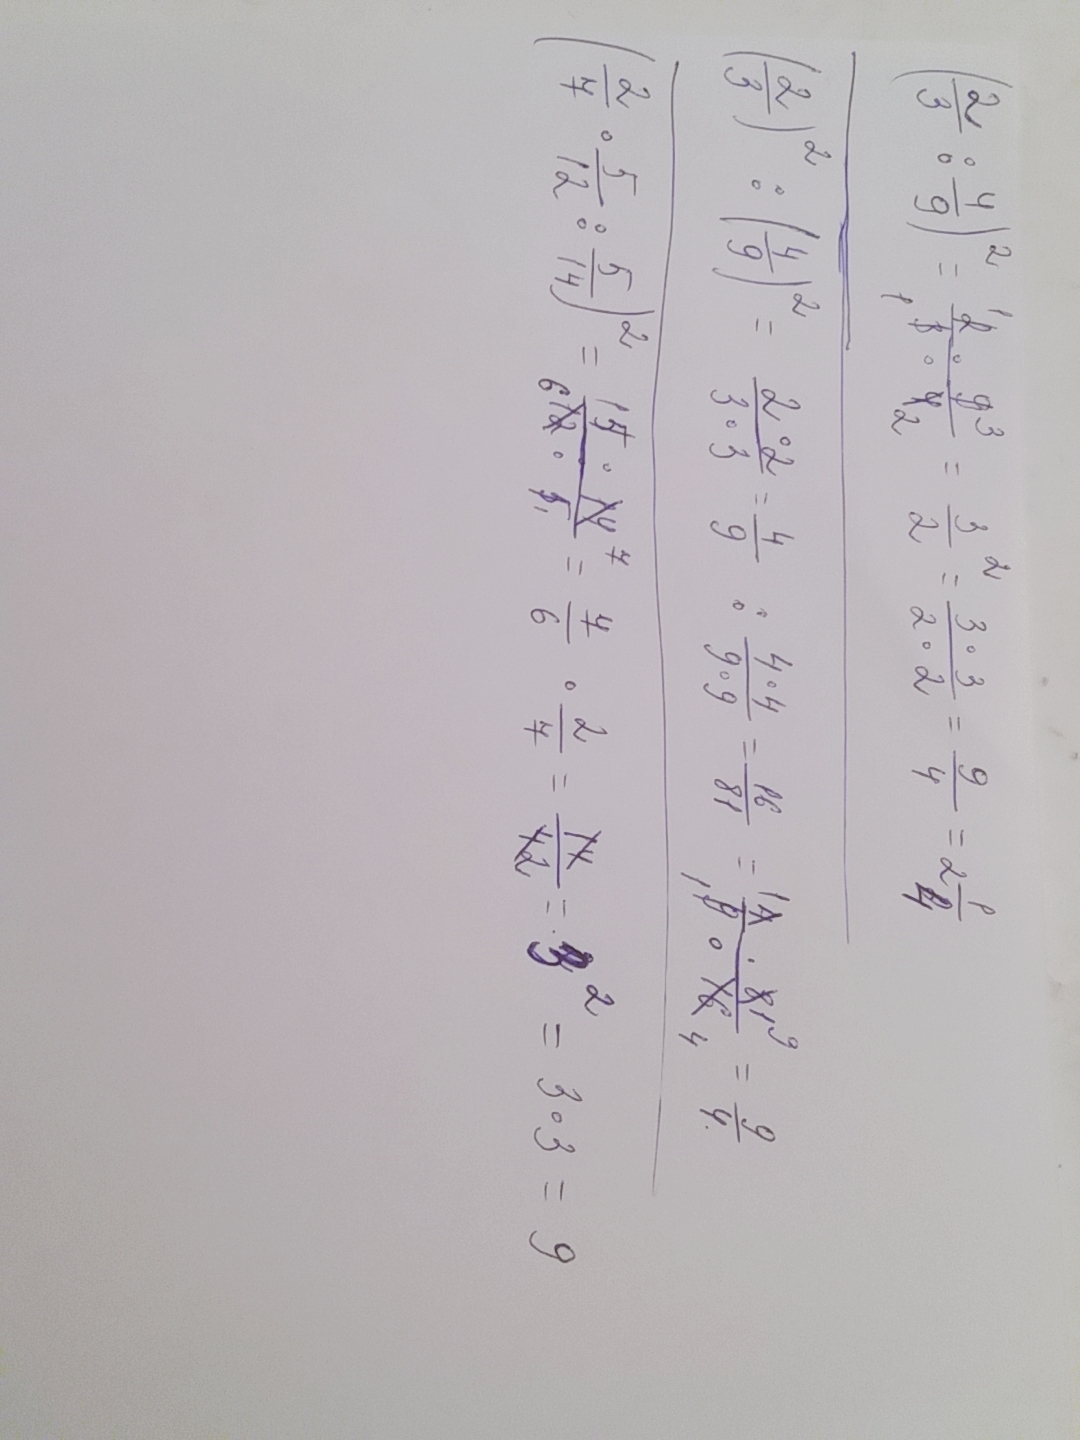 (2/3 : 4/9)² = 2·9/3·4 = 3/2² = 3·3/2·2 = 9/4 = 2 1/4
(2/3)² : (4/9)² = 2·2/3·3 = 4/9 : 4·4/9·9 = 16/81 = 4·81/9·16 = 9/4
(2/7 · 5/12 : 5/14)² = 5·14/12·5 = 7/6 · 2/7 = 14/42 = 3² = 3·3 = 9